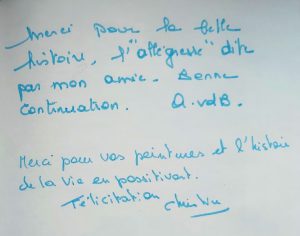 Merci pour la belle
histoire, l'"allégresse" dite
par mon amie. Bonne
continuation. A. vdB.
Merci pour vos peintures et l'histoire
de la vie en possitivant.
Félicitation